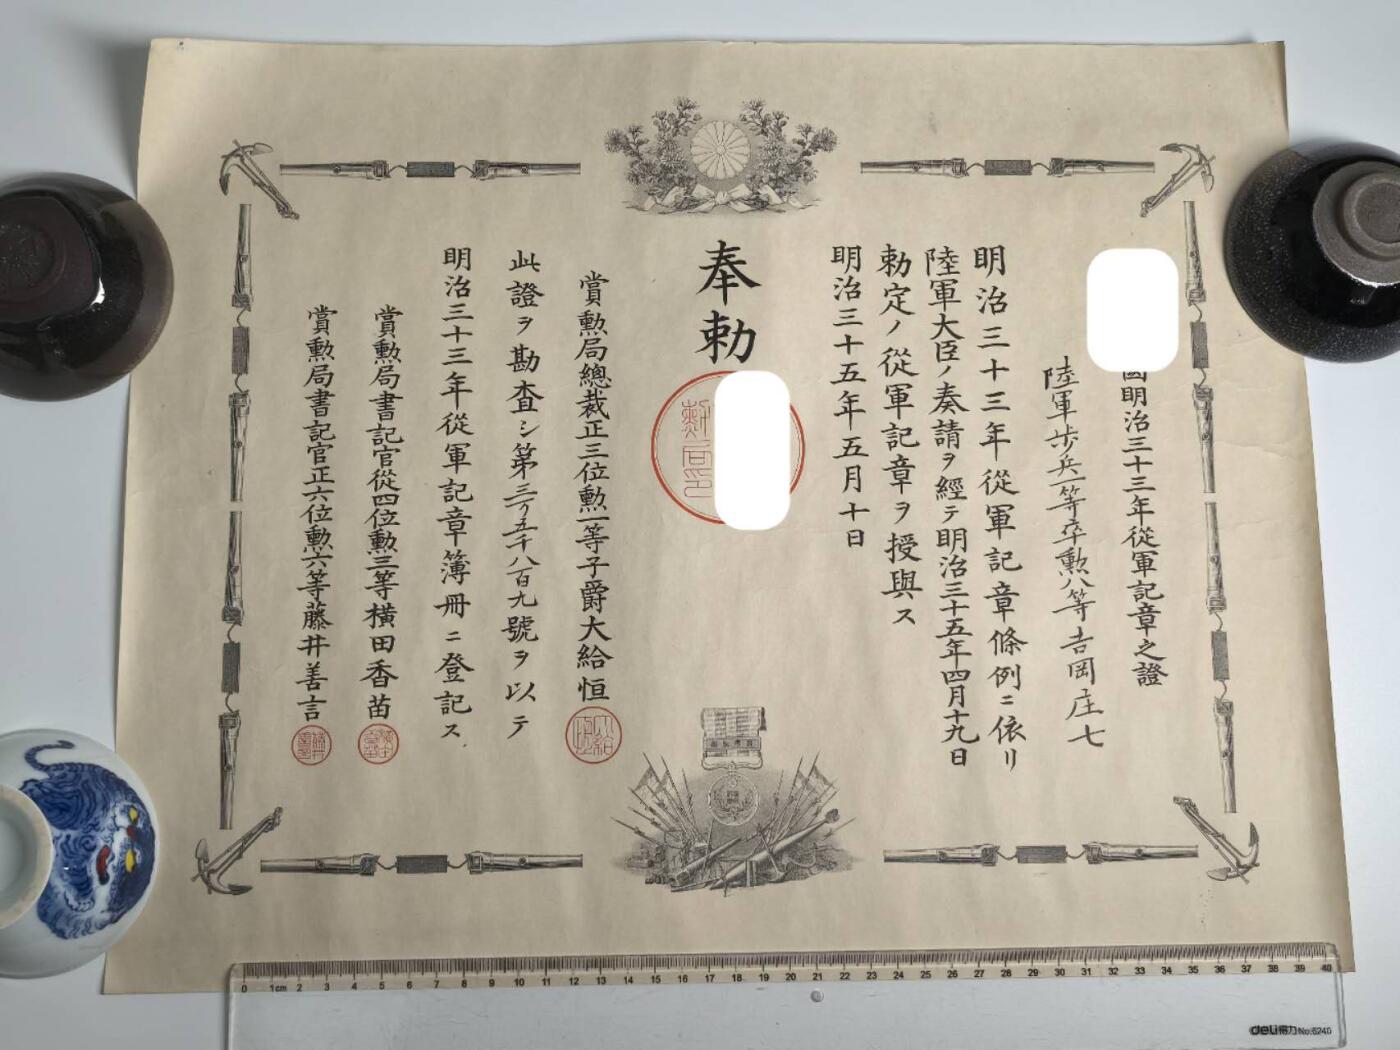 國明治三十三年從軍記章之證
陸軍步兵一等卒勲八等吉岡庄七
明治三十三年從軍記章條例ニ依リ
陸軍大臣ノ奏請ヲ經テ明治三十五年四月十九日
勅定ノ從軍記章ヲ授與ス
明治三十五年五月十日
奉勅
賞勲局總裁正三位勲一等子爵大給恒
此證ヲ勘査シ第三万五千八百九號ヲ以テ
明治三十三年從軍記章簿冊ニ登記ス
賞勲局書記官從四位勲三等橫田香苗
賞勲局書記官正六位勲六等藤井善言
0 1cm 2 3 4 5 6 7 8 9 10 11 12 13 14 15 16 17 18 19 20 21 22 23 24 25 26 27 28 29 30 31 32 33 34 35 36 37 38 39 40
deli得力 No.6240